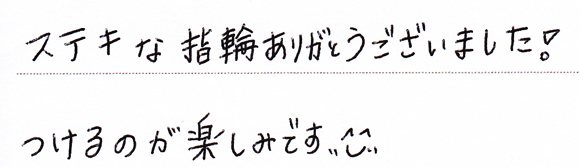 ステキな指輪ありがとうございました!
つけるのが楽しみです